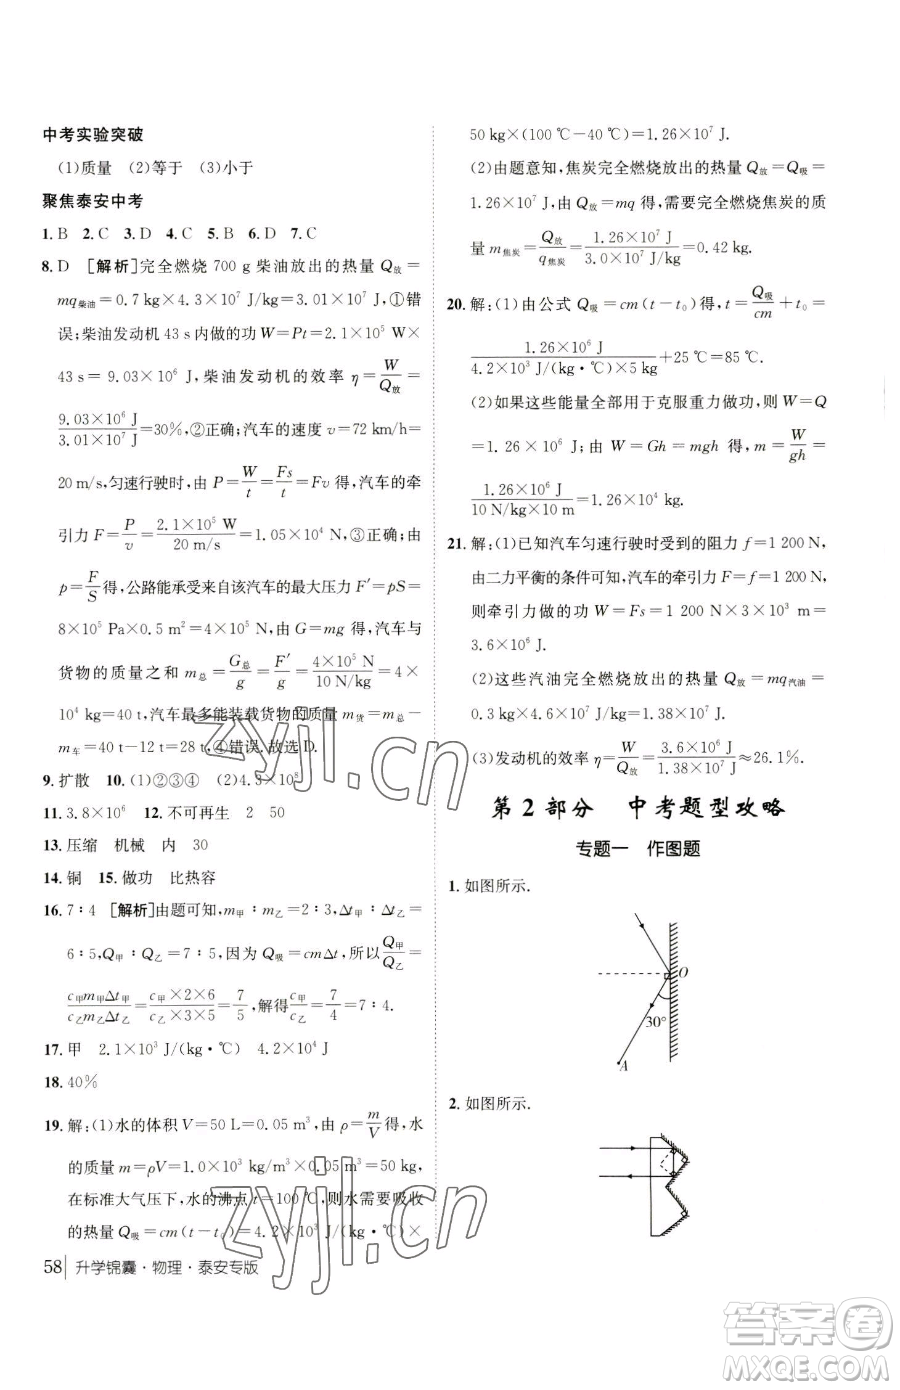 中考实验突破
(1)质量 (2)等于 (3)小于
聚焦泰安中考
1. B 2. C 3. D 4. C 5. B 6. D 7. C
8. D [解析]完全燃烧 700 g 柴油放出的热量 Q放=
mq柴油=0.7 kg×4.3×10⁷ J/kg=3.01×10⁷ J,①错
误;柴油发动机 43 s 内做的功 W=Pt=2.1×10⁵ W×
43 s=9.03×10⁶ J,柴油发动机的效率 η=W/Q放=
9.03×10⁶ J/3.01×10⁷ J=30%,②正确;汽车的速度 v=72 km/h=
20 m/s,匀速行驶时,由 P=W/t=Fs/t=Fv 得,汽车的牵
引力 F=P/v=2.1×10⁵ W/20 m/s=1.05×10⁴ N,③正确;由
p=F/S得,公路能承受来自该汽车的最大压力 F′=pS=
8×10⁵ Pa×0.5 m²=4×10⁵ N,由 G=mg 得,汽车与
货物的质量之和 m总=G总/g=F′/g=4×10⁵ N/10 N/kg=4×
10⁴ kg=40 t,汽车最多能装载货物的质量 m货=m总-
m车=40 t-12 t=28 t,④错误.故选 D.
9. 扩散 10. (1)①②③④ (2)4.3×10⁸
11. 3.8×10⁶ 12. 不可再生 2 50
13. 压缩 机械 内 30
14. 铜 15. 做功 比热容
16. 7∶4 [解析]由题可知,m甲∶m乙=2∶3,Δt甲∶Δt乙=
6∶5,Q甲∶Q乙=7∶5,因为 Q吸=cmΔt,所以Q甲/Q乙=
c甲m甲Δt甲/c乙m乙Δt乙=c甲×2×6/c乙×3×5=7/5,解得c甲/c乙=7/4=7∶4.
17. 甲 2.1×10³ J/(kg·℃) 4.2×10³
18. 40%
19. 解:(1)水的体积 V=50 L=0.05 m³,由 ρ=m/V得,水
的质量 m=ρV=1.0×10³ kg/m³×0.05 m³=50 kg,
在标准大气压下,水的沸点 t=100 ℃,水需要吸收
的热量 Q吸=cm(t-t₀)=4.2×10³ J/(kg·℃)×
50 kg×(100 ℃-40 ℃)=1.26×10⁷ J.
(2)由题意知,焦炭完全燃烧放出的热量 Q放=Q吸=
1.26×10⁷ J,由 Q放=mq 得,需要完全燃烧焦炭的质
量 m焦炭=Q放/q焦炭=1.26×10⁷ J/3.0×10⁷ J/kg=0.42 kg.
20. 解:(1)由公式 Q吸=cm(t-t₀)得,t=Q吸/cm+t₀=
1.26×10⁶ J/4.2×10³ J/(kg·℃)×5 kg+25 ℃=85 ℃.
(2)如果这些能量全部用于克服重力做功,则 W=Q
=1.26×10⁶ J;由 W=Gh=mgh 得,m=W/gh=
1.26×10⁶ J/10 N/kg×10 m=1.26×10⁴ kg.
21. 解:(1)已知汽车匀速行驶时受到的阻力 f=1 200 N,
由二力平衡的条件可知,汽车的牵引力 F=f=1 200 N,
则牵引力做的功 W=Fs=1 200 N×3×10³ m=
3.6×10⁶ J.
(2)这些汽油完全燃烧放出的热量 Q放=mq汽油=
0.3 kg×4.6×10⁷ J/kg=1.38×10⁷ J.
(3)发动机的效率 η=W/Q放=3.6×10⁶ J/1.38×10⁷ J≈26.1%.
第 2 部分 中考题型攻略
专题一 作图题
1. 如图所示.
O
30°
A
2. 如图所示.
58 升学锦囊·物理·泰安专版
zyjl.cn
zyjl.cn
答案圈
MXQE.COM